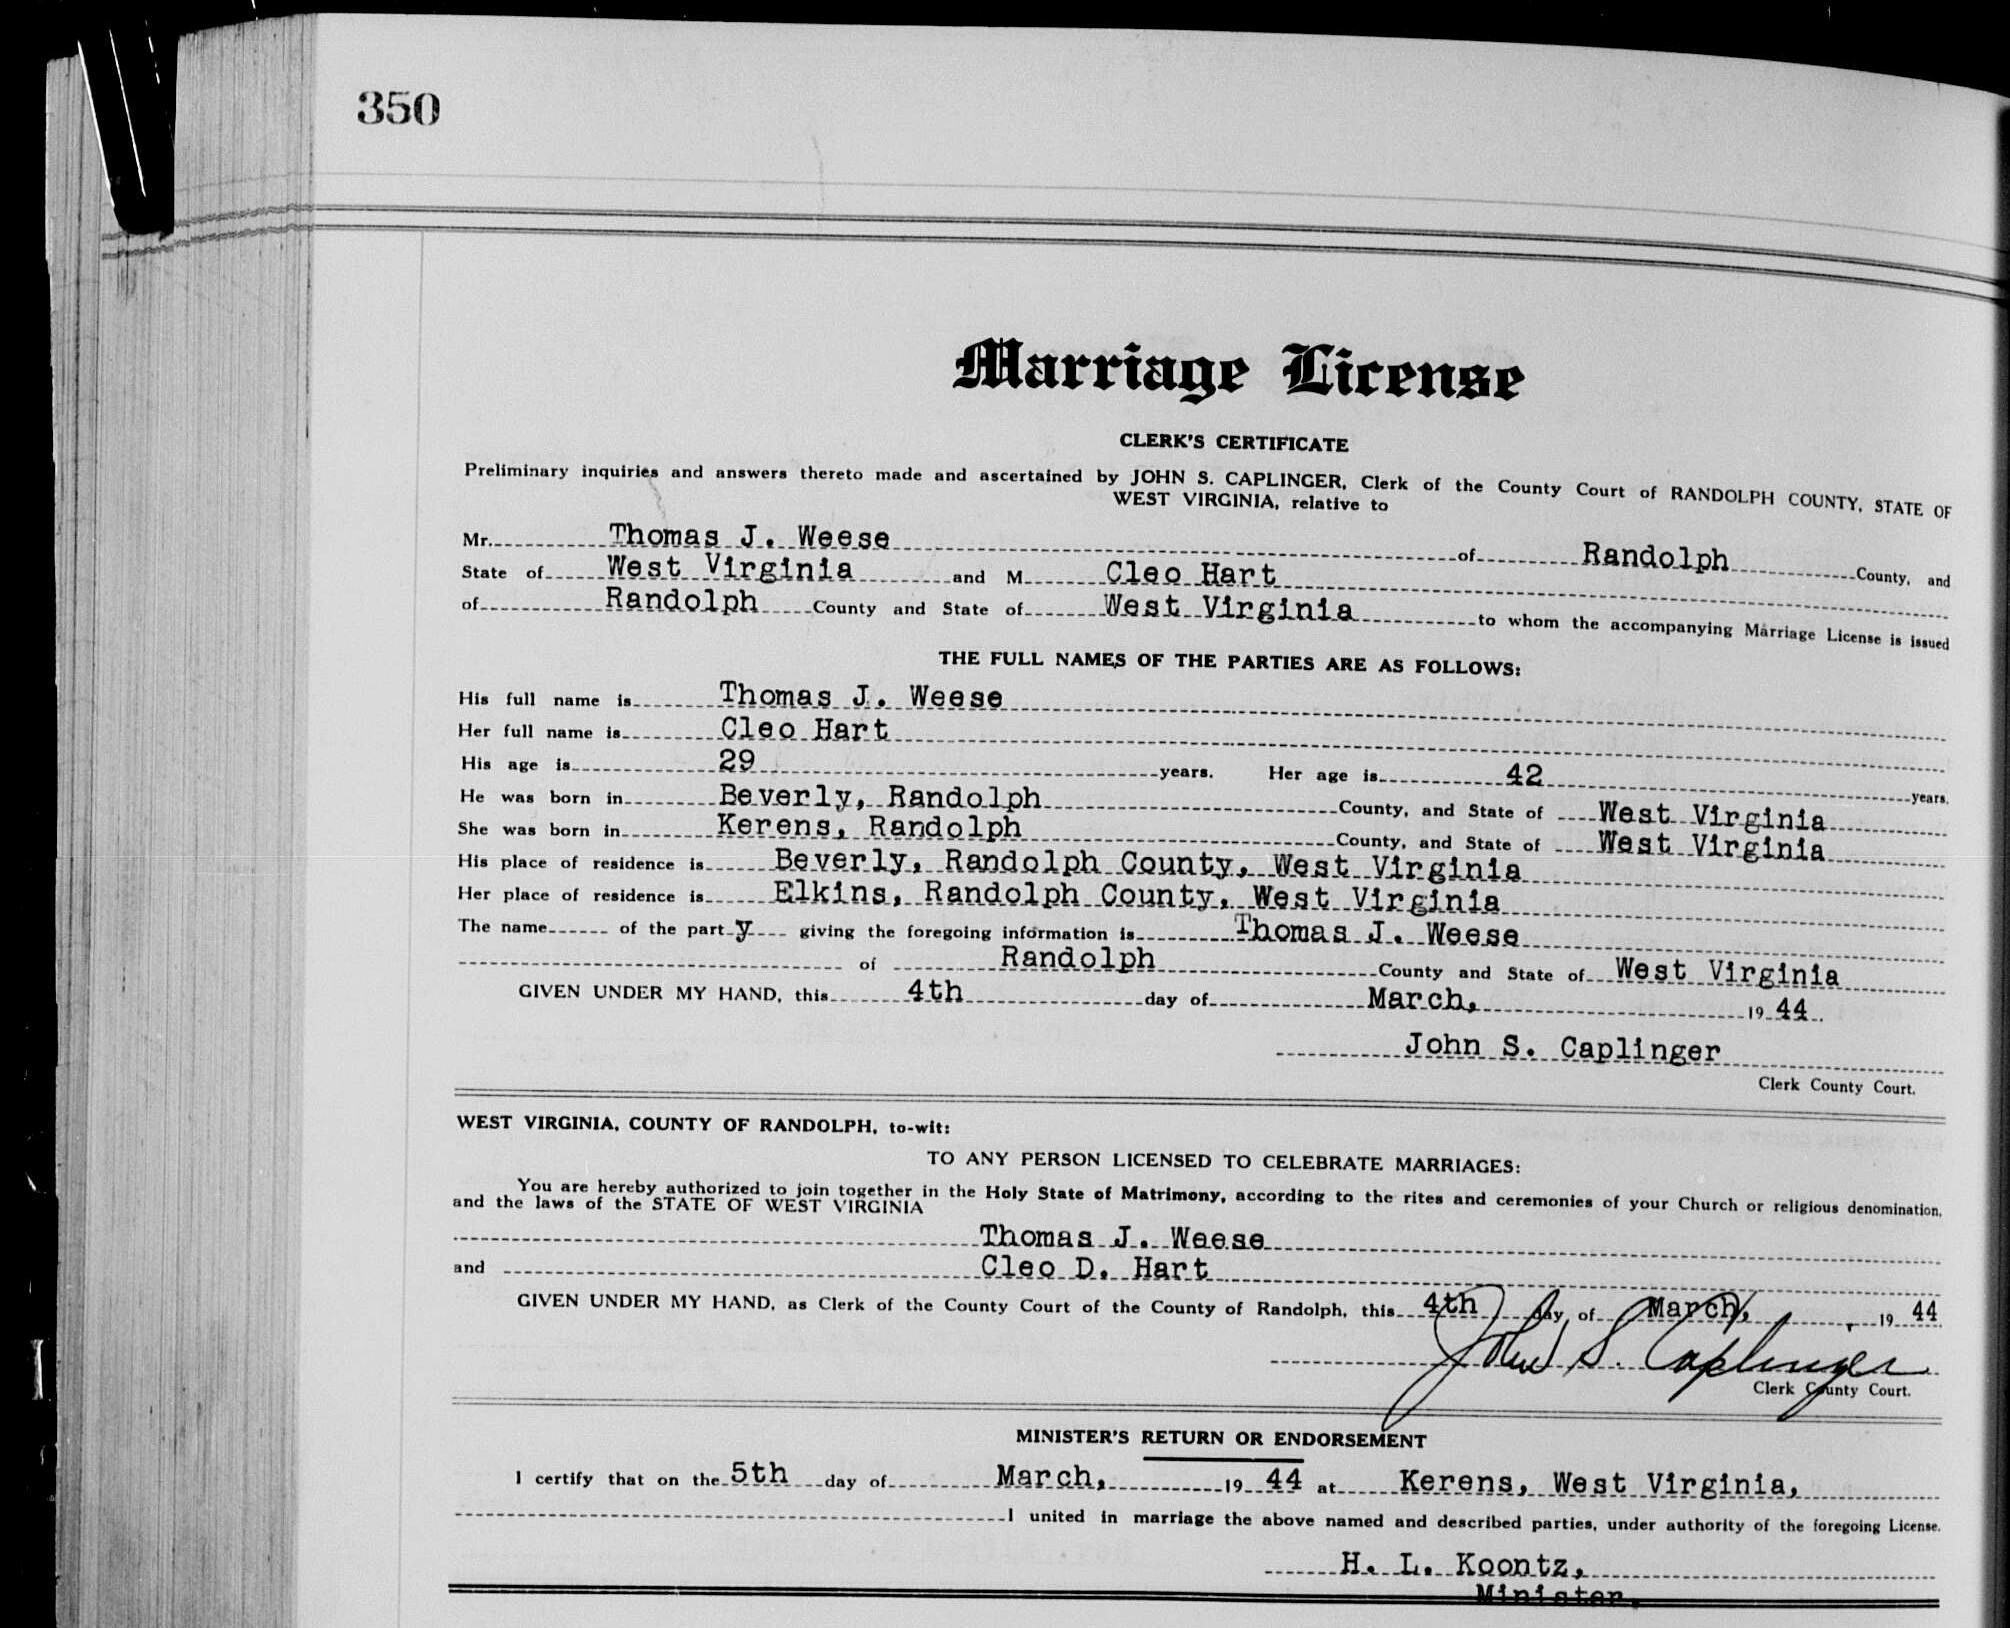 350
Marriage License
CLERK'S CERTIFICATE
Preliminary inquiries and answers thereto made and ascertained by JOHN S. CAPLINGER, Clerk of the County Court of RANDOLPH COUNTY, STATE OF
WEST VIRGINIA, relative to
Mr. Thomas J. Weese of Randolph County, and
State of West Virginia and M Cleo Hart
of Randolph County and State of West Virginia to whom the accompanying Marriage License is issued
THE FULL NAMES OF THE PARTIES ARE AS FOLLOWS:
His full name is Thomas J. Weese
Her full name is Cleo Hart
His age is 29 years. Her age is 42 years.
He was born in Beverly, Randolph County, and State of West Virginia
She was born in Kerens, Randolph County, and State of West Virginia
His place of residence is Beverly, Randolph County, West Virginia
Her place of residence is Elkins, Randolph County, West Virginia
The name of the party giving the foregoing information is Thomas J. Weese
of Randolph County and State of West Virginia
GIVEN UNDER MY HAND, this 4th day of March, 1944.
John S. Caplinger
Clerk County Court.
WEST VIRGINIA, COUNTY OF RANDOLPH, to-wit:
TO ANY PERSON LICENSED TO CELEBRATE MARRIAGES:
You are hereby authorized to join together in the Holy State of Matrimony, according to the rites and ceremonies of your Church or religious denomination,
and the laws of the STATE OF WEST VIRGINIA
Thomas J. Weese
and Cleo D. Hart
GIVEN UNDER MY HAND, as Clerk of the County Court of the County of Randolph, this 4th day of March, , 1944
John S. Caplinger
Clerk County Court.
MINISTER'S RETURN OR ENDORSEMENT
I certify that on the 5th day of March, 1944 at Kerens, West Virginia,
I united in marriage the above named and described parties, under authority of the foregoing License.
H. L. Koontz,
Minister.